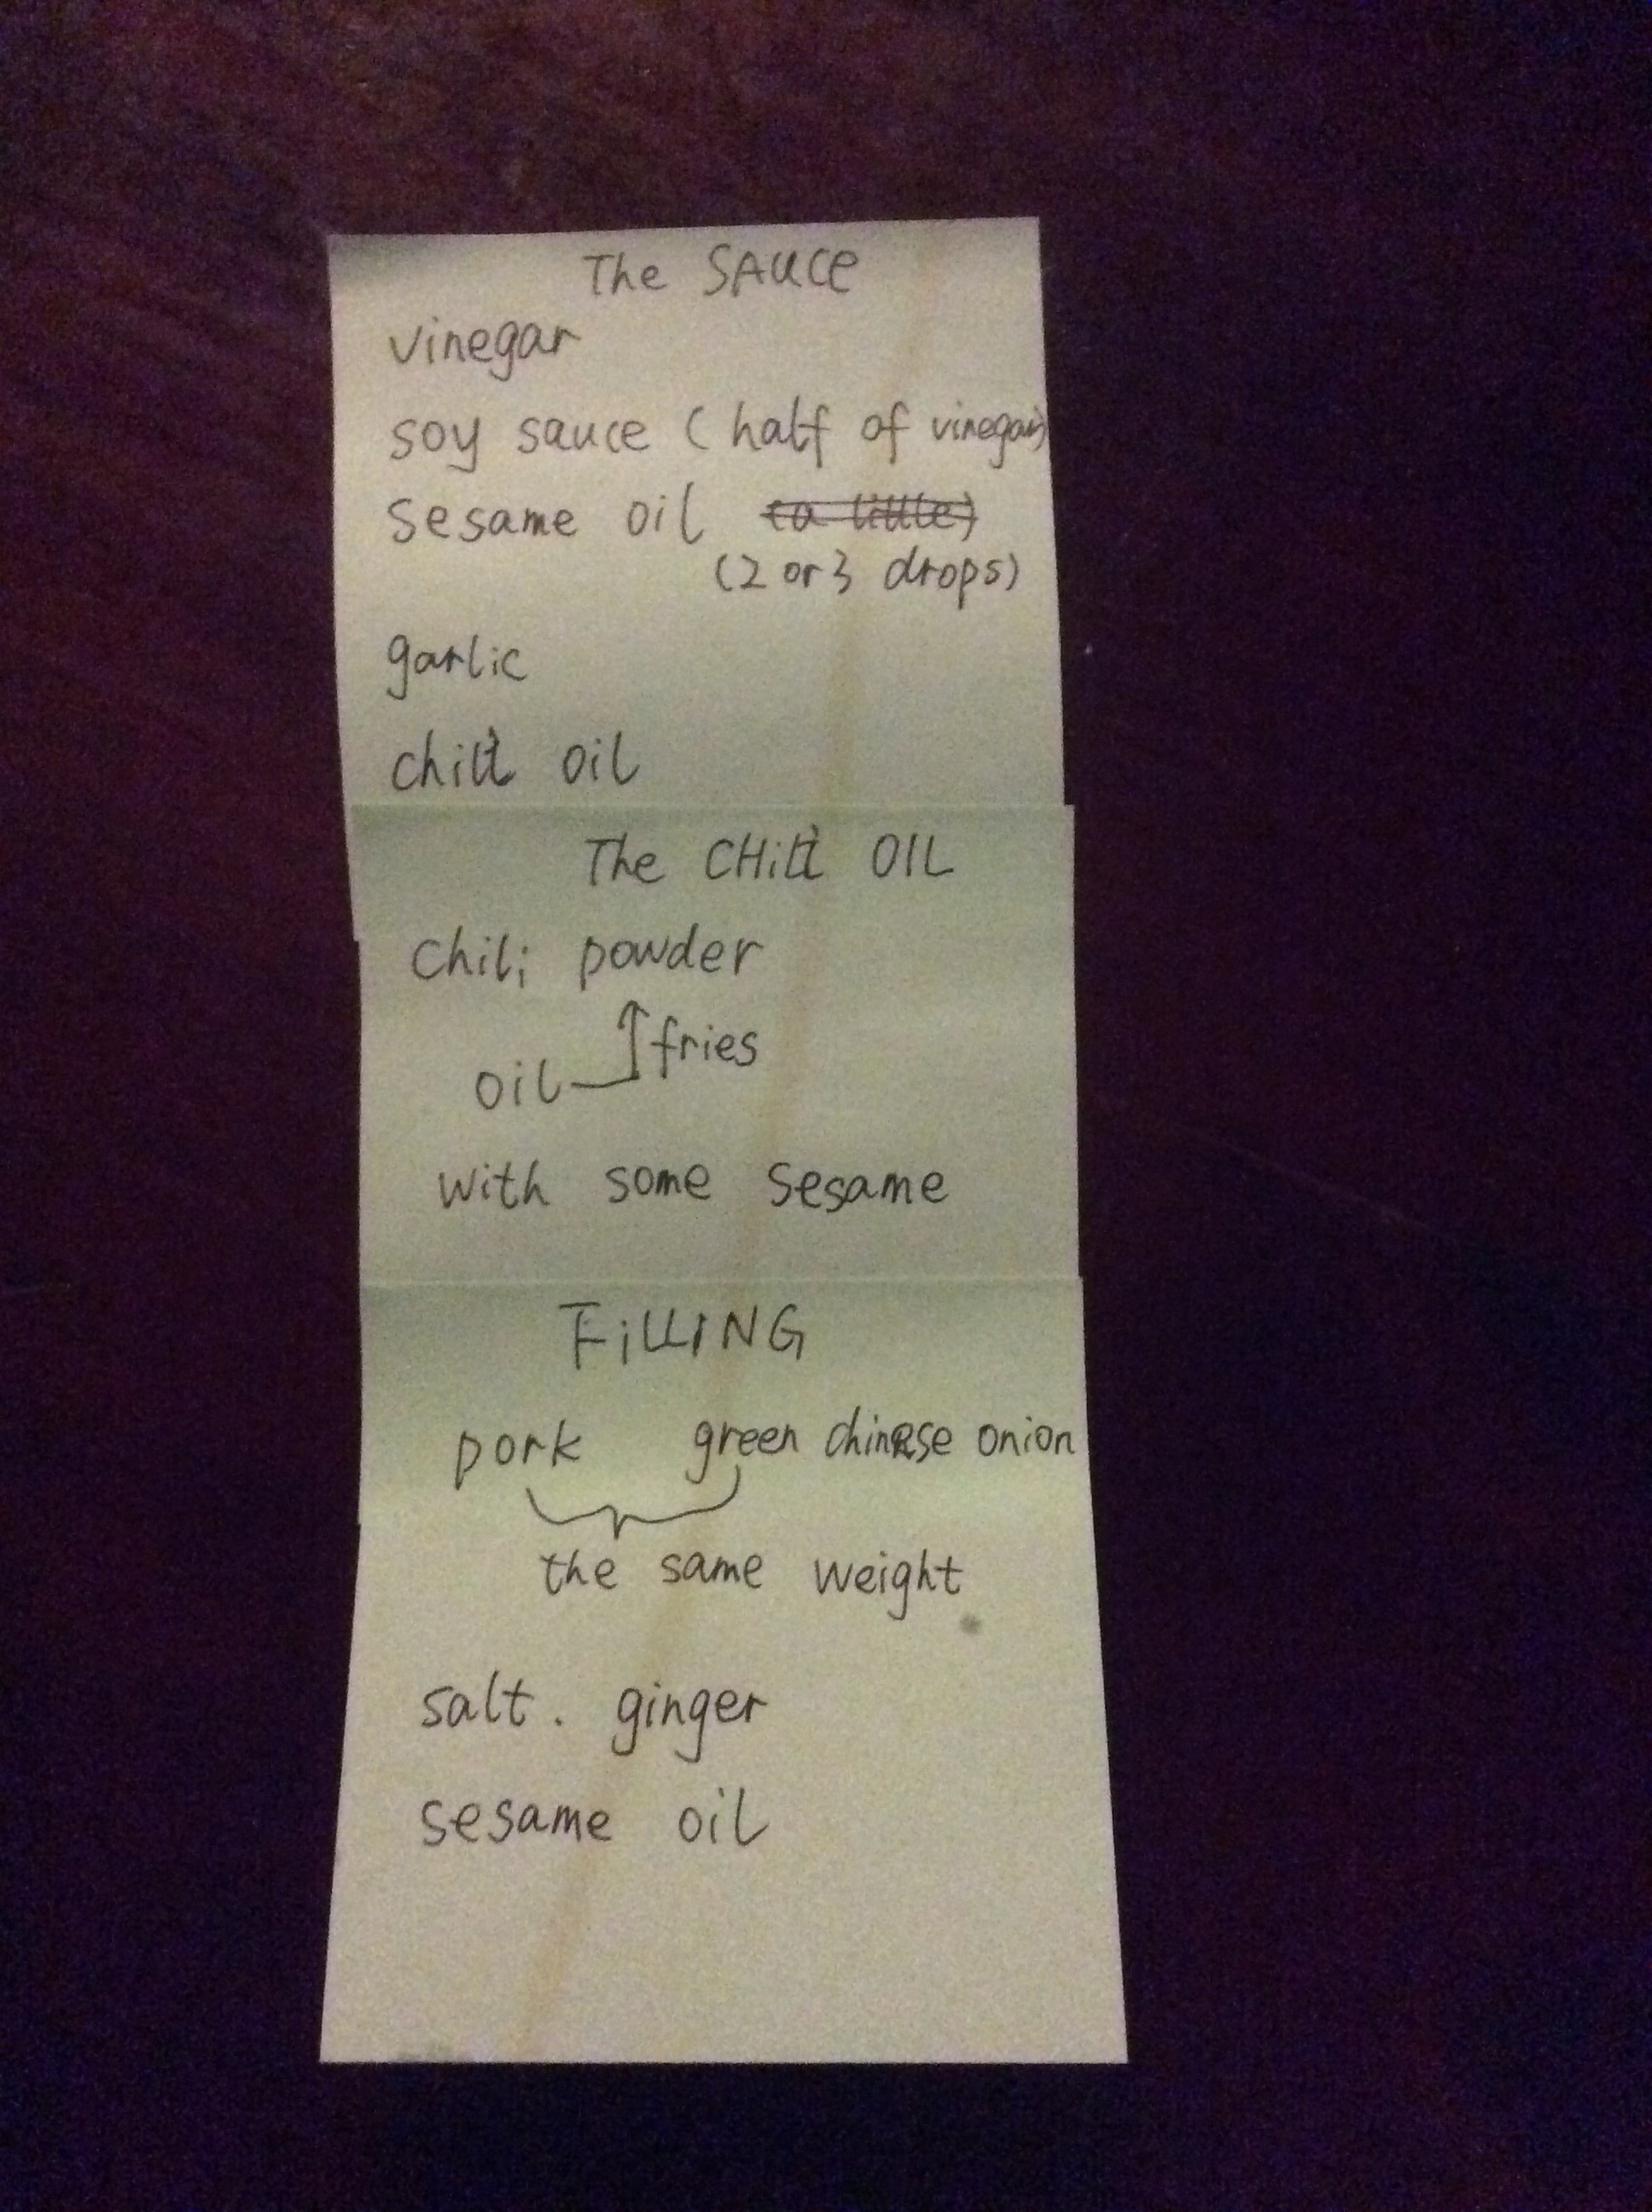 The SAUCE
vinegar
soy sauce (half of vinegar)
sesame oil (a little)
(2 or 3 drops)
garlic
chili oil
The CHili OIL
Chili powder
fries
oil
with some sesame
FiLLING
pork green chinese onion
the same weight
salt. ginger
sesame oil